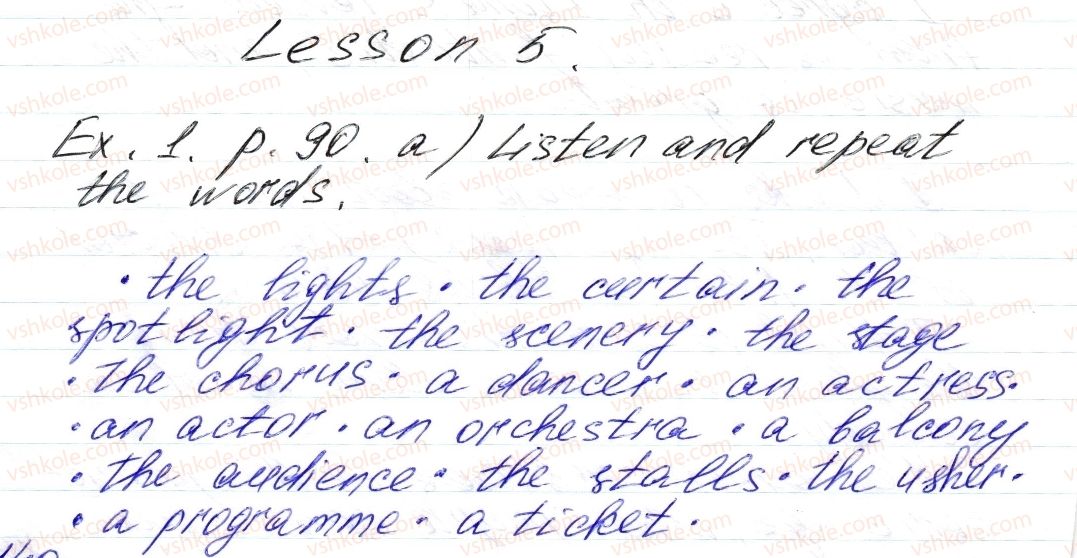 Lesson 5.
Ex. 1. p. 90. a) Listen and repeat
the words.
• the lights • the curtain • the
spotlight • the scenery • the stage
• the chorus • a dancer • an actress •
• an actor • an orchestra • a balcony
• the audience • the stalls • the usher •
• a programme • a ticket •